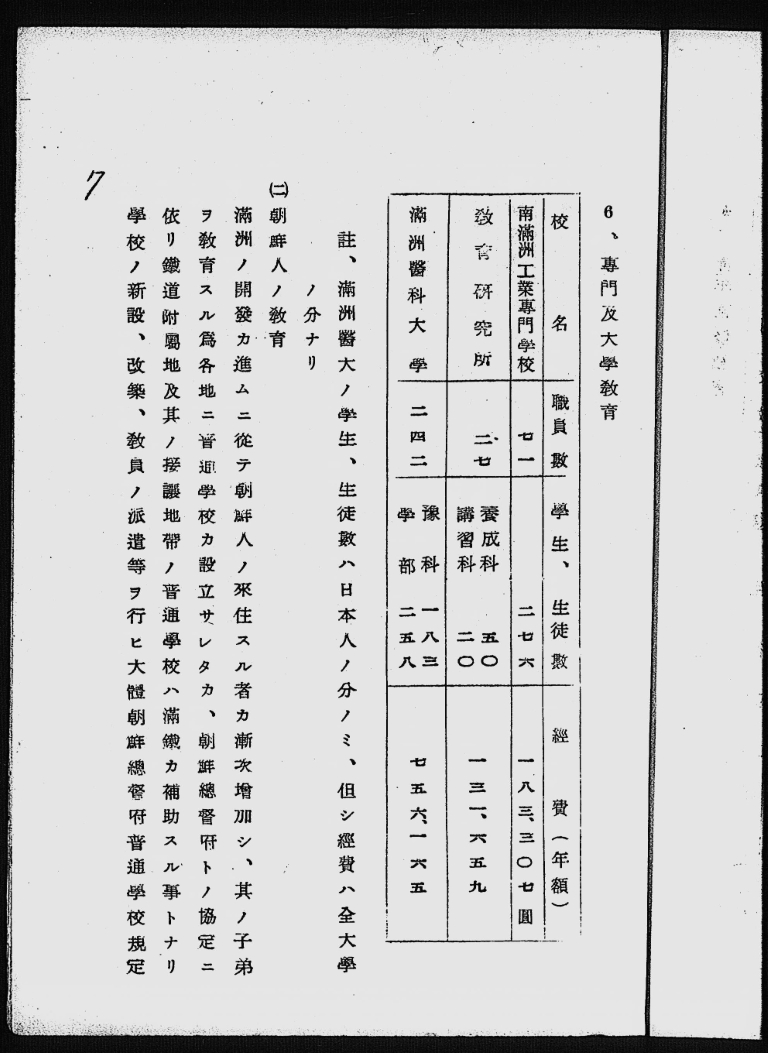 6、專門及大學敎育
校名
職員數
學生、生徒數
經費(年額)
南滿洲工業專門學校
七一
二七六
一八三、三〇七圓
敎育硏究所
二七
養成科 五〇
講習科 二〇
一三一、六五九
滿洲醫科大學
二四二
豫科 一八三
學部 二五八
七五六、一六五
註、滿洲醫大ノ學生、生徒數ハ日本人ノ分ノミ、但シ經費ハ全大學
ノ分ナリ
㈡朝鮮人ノ敎育
滿洲ノ開發カ進ムニ從テ朝鮮人ノ來住スル者カ漸次增加シ、其ノ子弟
ヲ敎育スル爲各地ニ普通學校カ設立サレタカ、朝鮮總督府トノ協定ニ
依リ鐵道附屬地及其ノ接讓地帶ノ普通學校ハ滿鐵カ補助スル事トナリ
學校ノ新設、改築、敎員ノ派遣等ヲ行ヒ大體朝鮮總督府普通學校規定
7